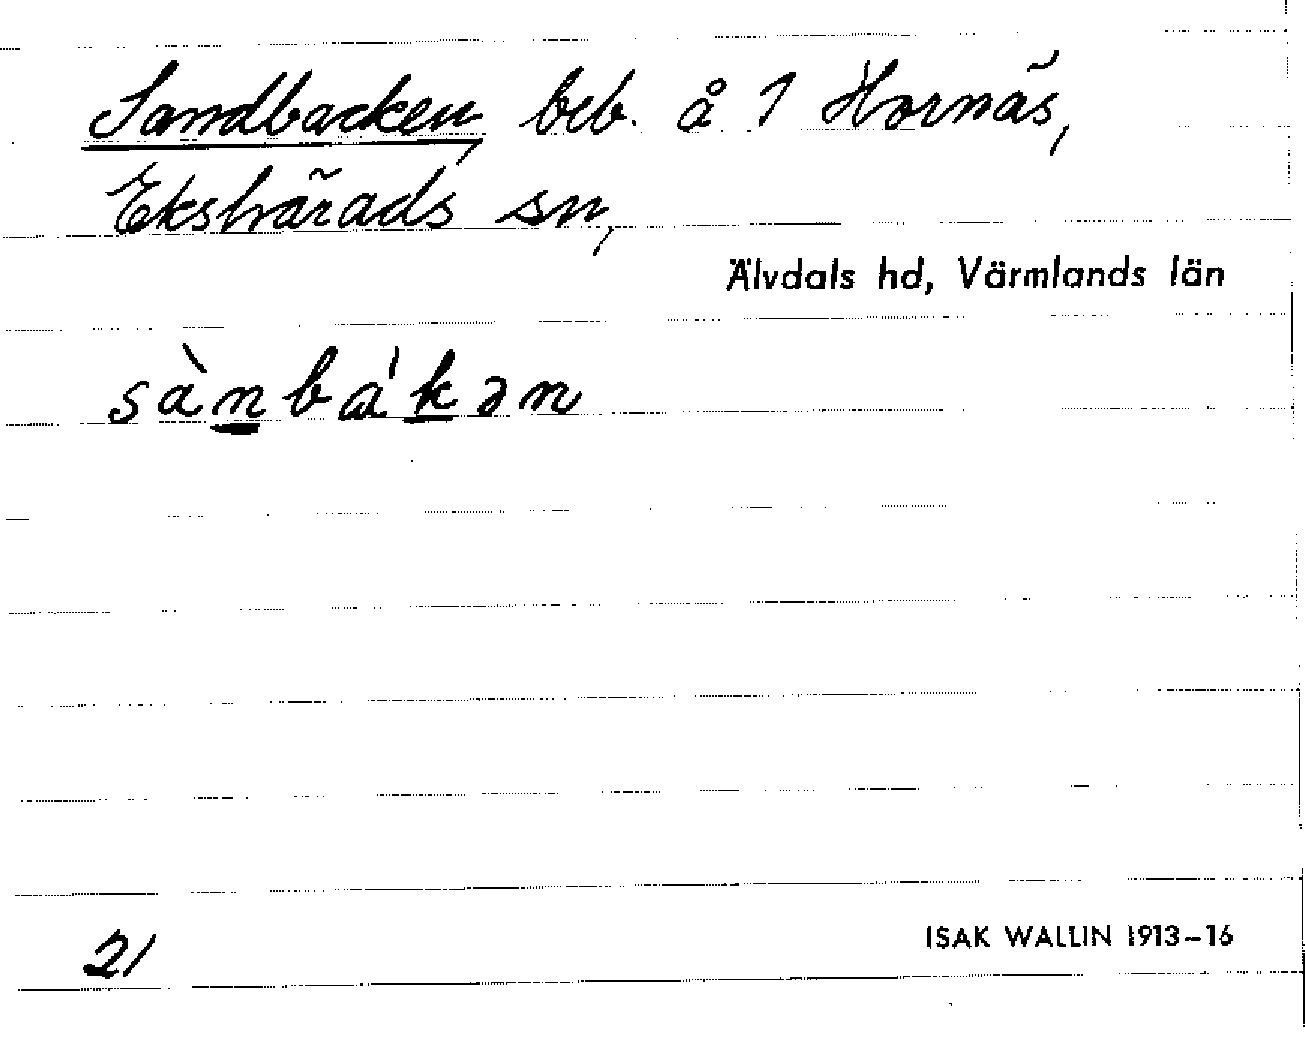 Sandbacken, beb. å 1 Hornäs,
Ekshärads sn,
Älvdals hd, Värmlands län
sànbák̲ən
21
ISAK WALLIN 1913–16